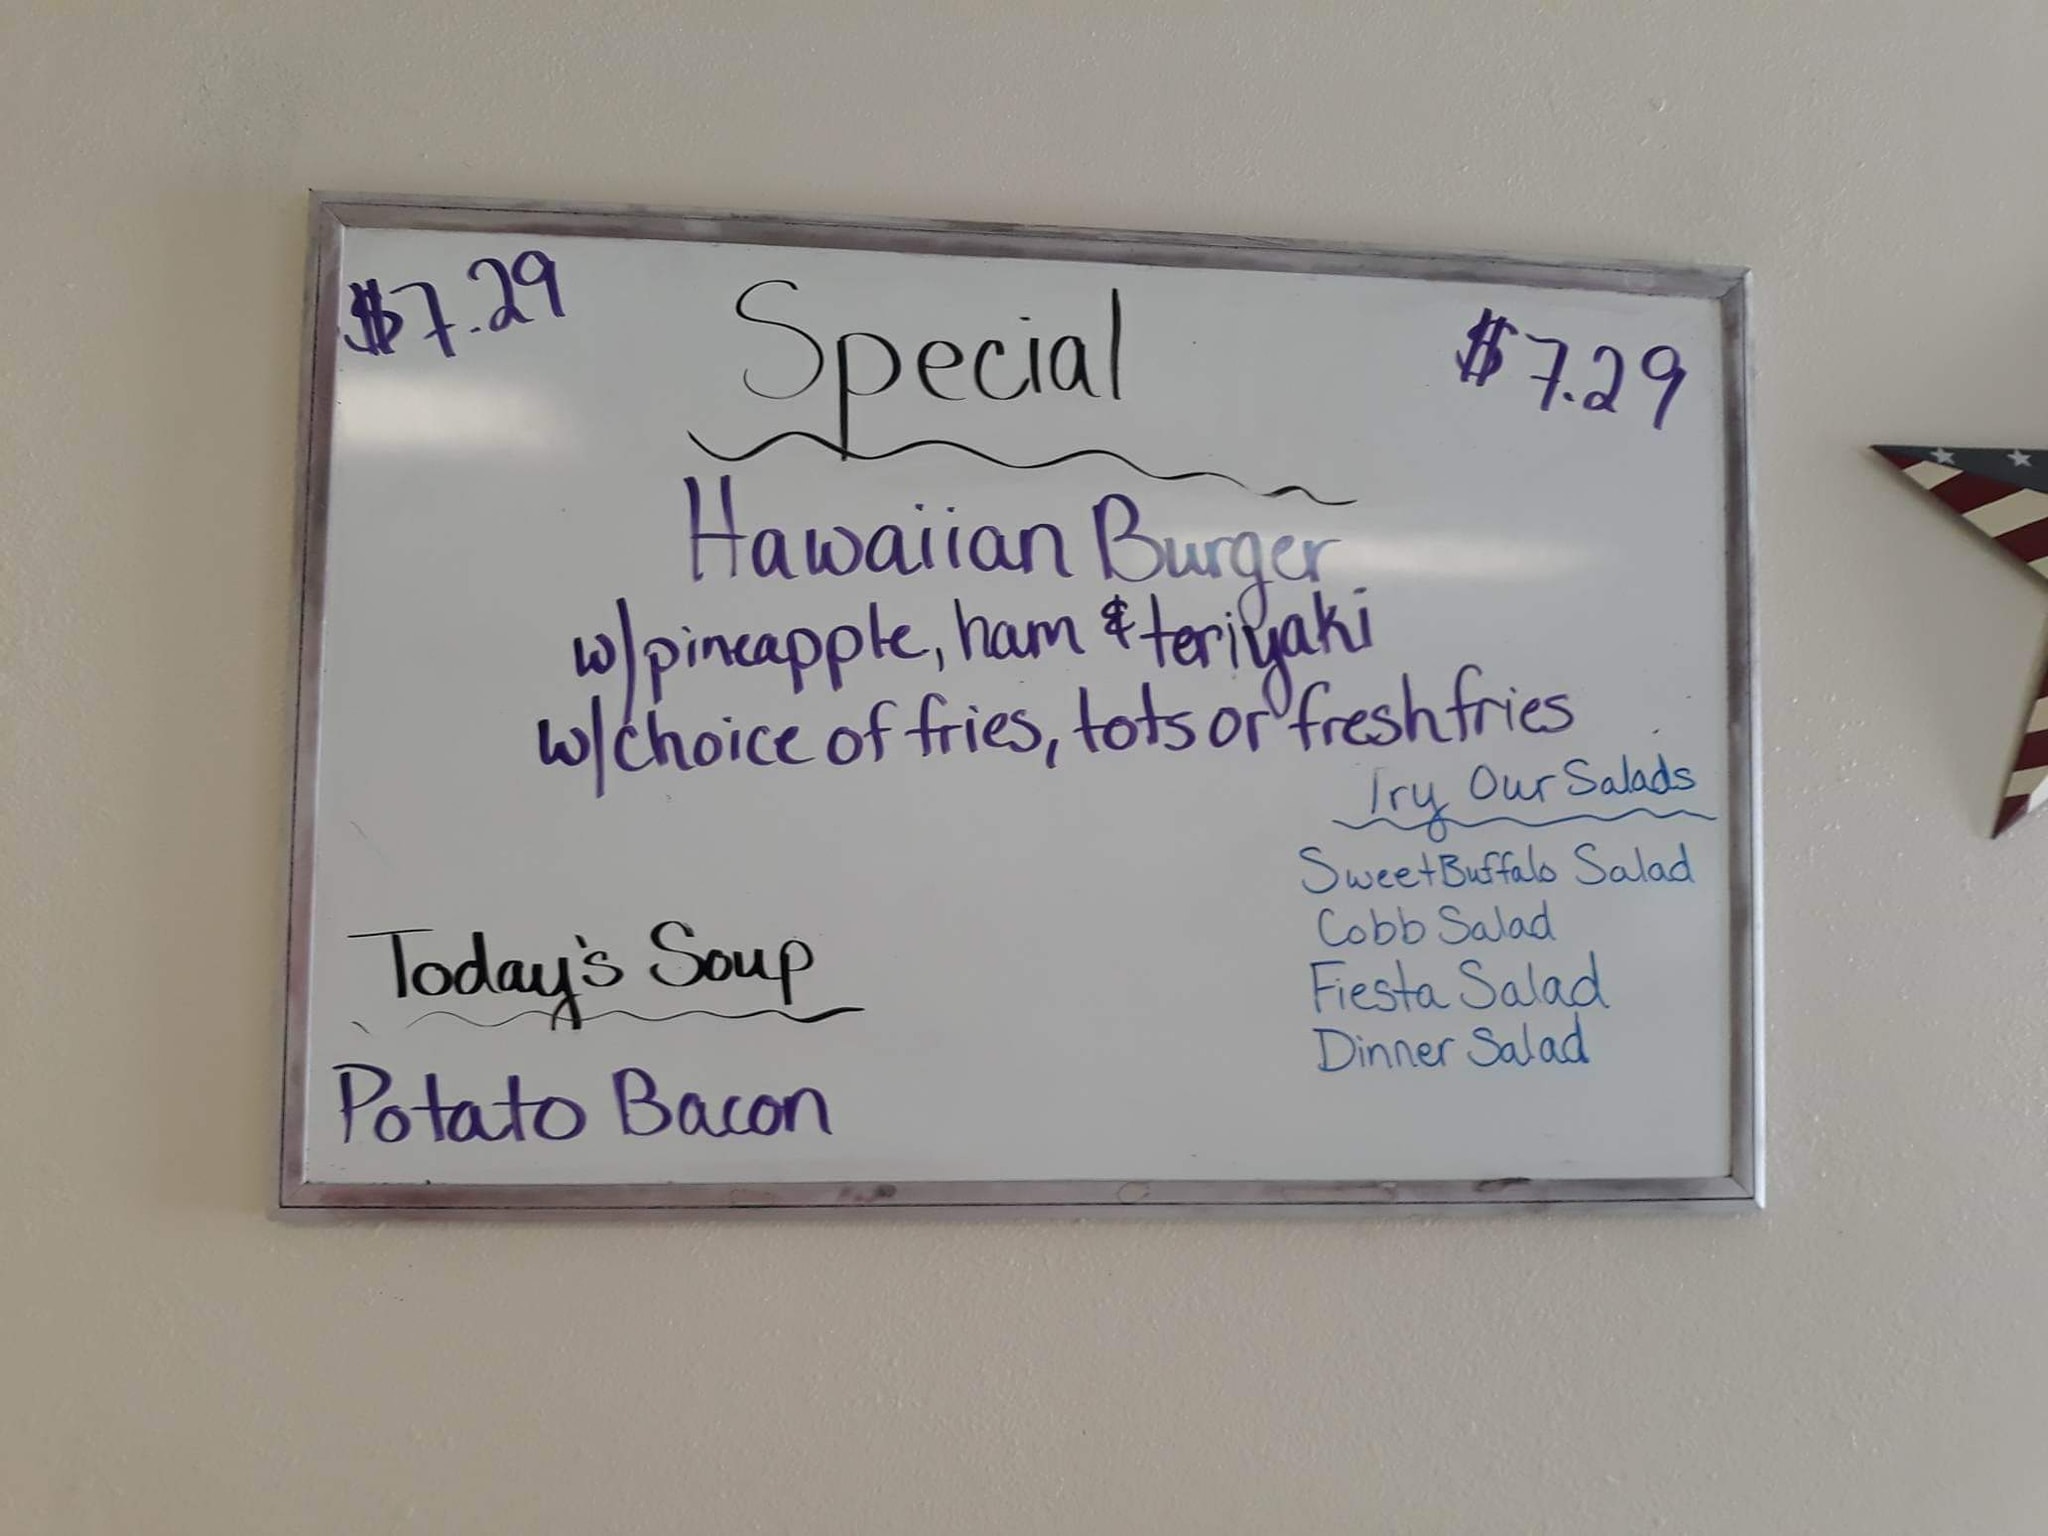 $7.29
Special
$7.29
Hawaiian Burger
w/pineapple, ham & teriyaki
w/choice of fries, tots or fresh fries
Try Our Salads
Sweet Buffalo Salad
Cobb Salad
Fiesta Salad
Dinner Salad
Today's Soup
Potato Bacon